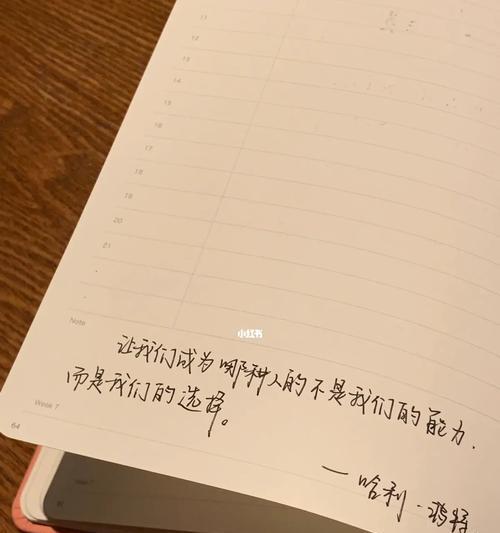 11
12
13
14
15
16
17
18
19
20
21
Note
小红书
让我们成为哪种人的不是我们的能力.
而是我们的选择。
一哈利·波特
Week 7
64